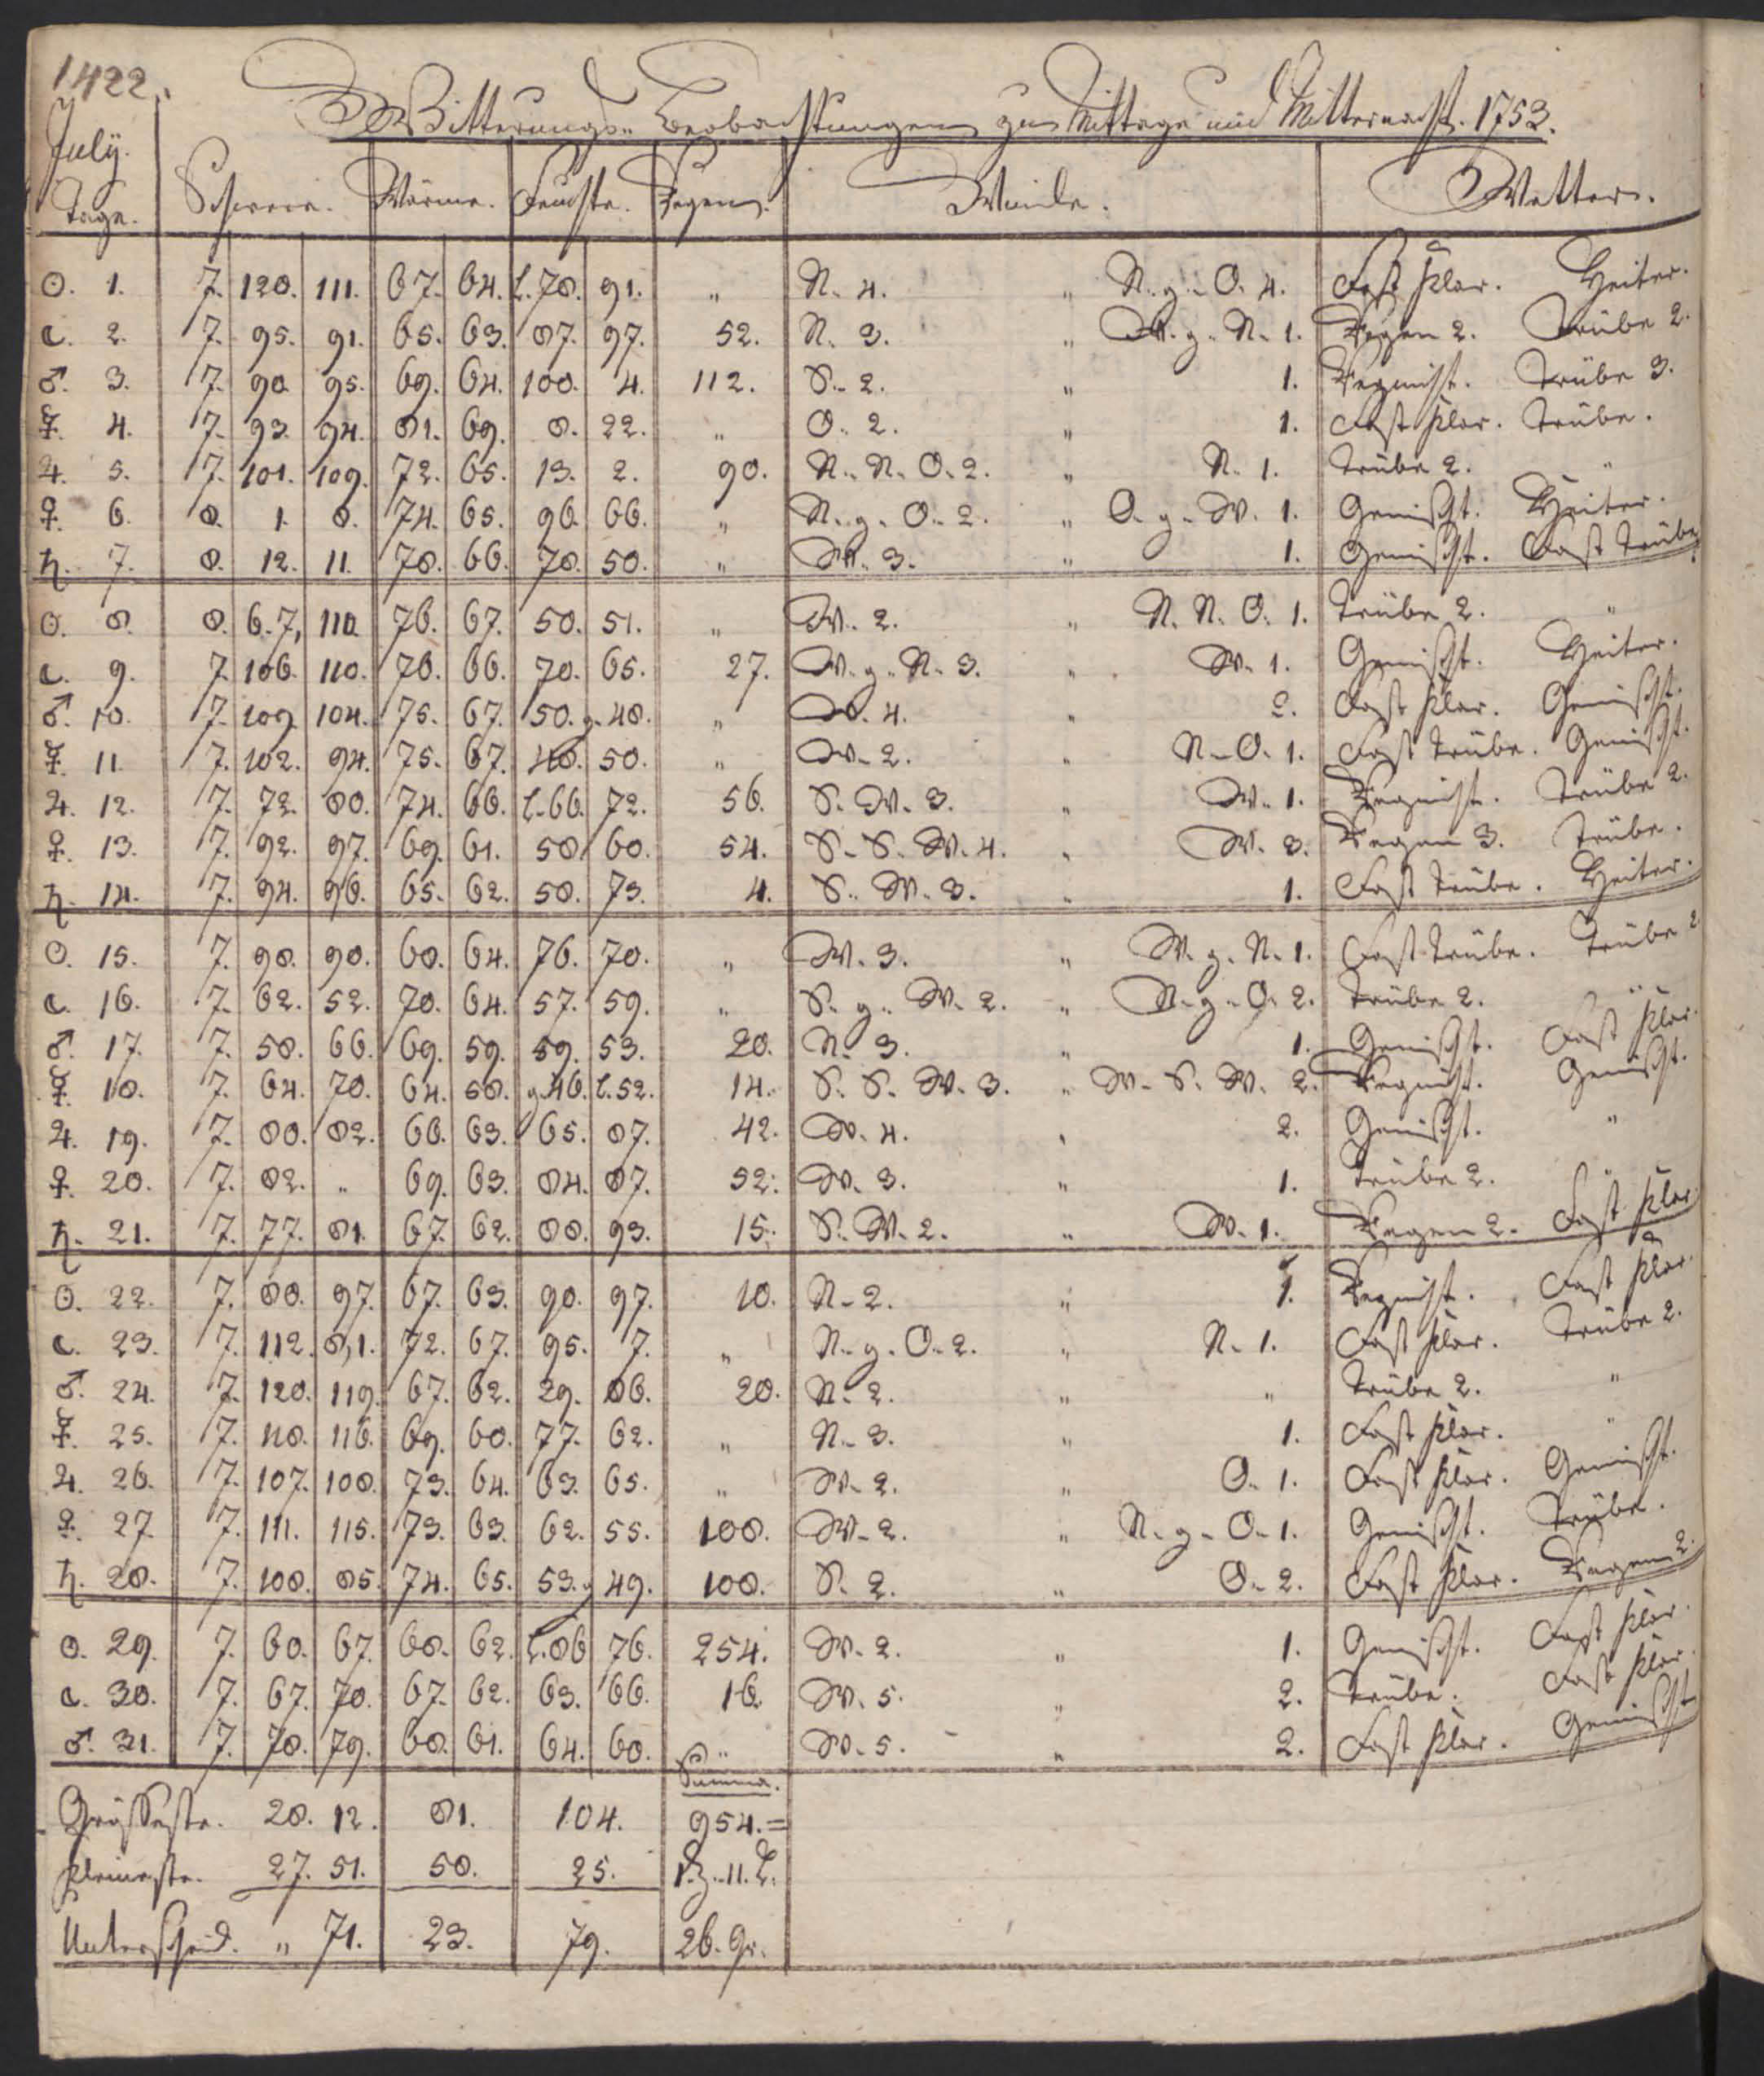 1422.
Witterungs- Beobachtungen zu Mittage und Mitternacht. 1753.
July.
Tage. Schwere. Wärme. Feuchte. Regen. Winde. Wetter.
☉. 1. 7. 120. 111. 67. 64. l. 78. 91. „ N. 4. „ N. g. O. 4. Fast klar. Heiter.
☾. 2. 7. 95. 91. 65. 63. 87. 97. 52. N. 3. „ W. g. N. 1. Regen 2. Trübe 2.
♂. 3. 7. 90. 95. 69. 64. 100. 4. 112. S. 2. „ 1. Regnicht. Trübe 3.
☿. 4. 7. 93. 94. 81. 69. 8. 22. „ O. 2. „ 1. Fast klar. Trübe.
♃. 5. 7. 101. 109. 72. 65. 13. 2. 90. N. N. O. 2. „ N. 1. Trübe 2. „
♀. 6. 8. 1. 8. 74. 65. 96. 66. „ N. g. O. 2. „ O. g. W. 1. Gemischt. Heiter.
♄. 7. 8. 12. 11. 78. 66. 78. 50. „ W. 3. „ 1. Gemischt. Fast trübe.
☉. 8. 8. 6. 7, 118. 76. 67. 50. 51. „ W. 2. „ N. N. O. 1. Trübe 2. „
☾. 9. 7. 106. 110. 76. 66. 70. 65. 27. W. g. N. 3. „ W. 1. Gemischt. Heiter.
♂. 10. 7. 109. 104. 75. 67. 50. g. 48. „ W. 4. „ 2. Fast klar. Gemischt.
☿. 11. 7. 102. 94. 75. 67. 48. 50. „ W. 2. „ N. O. 1. Fast trübe. Gemischt.
♃. 12. 7. 72. 80. 74. 66. l. 66. 72. 56. S. W. 3. „ W. 1. Regnicht. Trübe 2.
♀. 13. 7. 92. 97. 69. 61. 58. 60. 54. S. S. W. 4. „ W. 3. Regen 3. Trübe.
♄. 14. 7. 94. 96. 65. 62. 58. 73. 4. S. W. 3. „ 1. Fast trübe. Heiter.
☉. 15. 7. 98. 90. 68. 64. 76. 70. „ W. 3. „ W. g. N. 1. Fast trübe. Trübe 2
☾. 16. 7. 62. 52. 70. 64. 57. 59. „ S. g. W. 2. „ N. g. O. 2. Trübe 2. „
♂. 17. 7. 58. 66. 69. 59. 59. 53. 20. N. 3. „ 1. Gemischt. Fast klar.
☿. 18. 7. 64. 70. 64. 58. g. 46. l. 52. 14. S. S. W. 3. „ W. S. W. 2. Regnicht. Gemischt.
♃. 19. 7. 80. 82. 66. 63. 65. 87. 42. W. 4. „ 2. Gemischt. „
♀. 20. 7. 82. „ 69. 63. 84. 87. 52. W. 3. „ 1. Trübe 2. „
♄. 21. 7. 77. 81. 67. 62. 88. 93. 15. S. W. 2. „ W. 1. Regen 2. Fast klar.
☉. 22. 7. 88. 97. 67. 63. 90. 97. 10. N. 2. „ 1. Regnicht. Fast klar.
☾. 23. 7. 112. 8,1. 72. 67. 95. 7. „ N. g. O. 2. „ N. 1. Fast klar. Trübe 2.
♂. 24. 7. 120. 119. 67. 62. 29. 86. 20. N. 2. „ „ Trübe 2. „
☿. 25. 7. 118. 116. 69. 60. 77. 62. „ N. 3. „ 1. Fast klar. „
♃. 26. 7. 107. 108. 73. 64. 63. 65. „ W. 2. „ O. 1. Fast klar. Gemischt.
♀. 27. 7. 111. 115. 73. 63. 62. 55. 108. W. 2. „ N. g. O. 1. Gemischt. Trübe.
♄. 28. 7. 108. 85. 74. 65. 53. g. 49. 108. S. 2. „ O. 2. Fast klar. Regen 2.
☉. 29. 7. 60. 67. 68. 62. l. 86. 76. 254. W. 2. „ 1. Gemischt. Fast klar.
☾. 30. 7. 67. 70. 67. 62. 63. 66. 16. W. 5. „ 2. Trübe. Fast klar.
♂. 31. 7. 78. 79. 68. 61. 64. 60. „ W. 5. „ 2. Fast klar. Gemischt
Summa.
Grösseste. 28. 12. 81. 104. 954. =
Kleineste. 27. 51. 58. 25. 1. Z. 11. L.
Unterscheid. „ 71. 23. 79. 26. Gr.